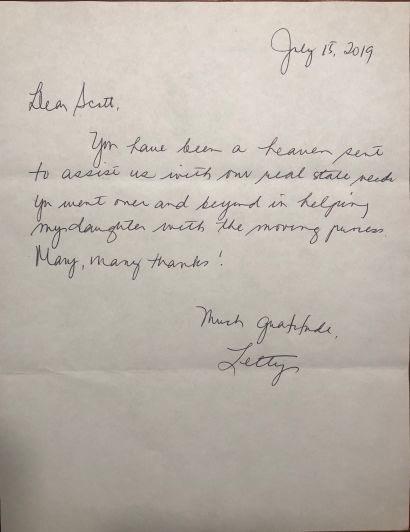 July 15, 2019
Dear Scott,
You have been a heaven sent
to assist us with our real state needs
you went over and beyond in helping
my daughter with the moving process.
Many, many thanks!
Much gratitude,
Letty